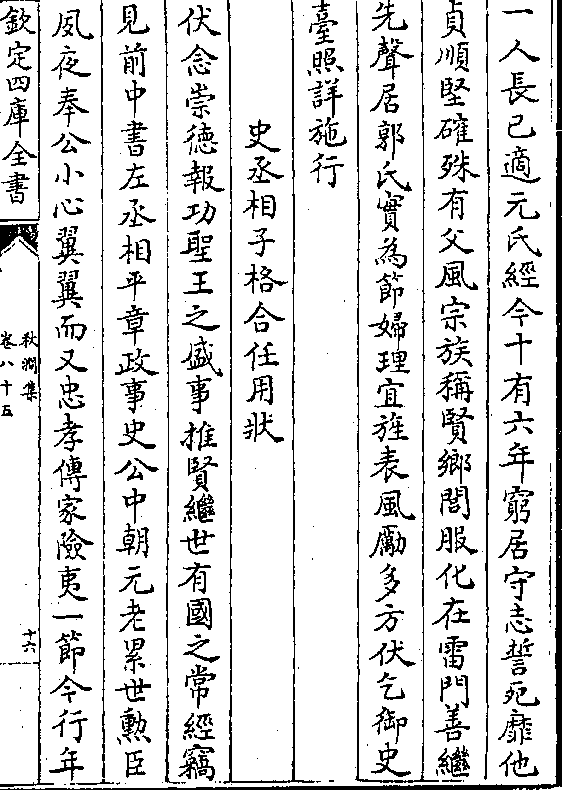 一人長已適元氏經今十有六年窮居守志誓死靡他
貞順堅確殊有父風宗族稱賢鄉閭服化在雷門善繼
先聲居郭氏實為節婦理宜旌表風勵多方伏乞御史
臺照詳施行
史丞相子格合任用狀
伏念崇德報功聖王之盛事推賢繼世有國之常經竊
見前中書左丞相平章政事史公中朝元老累世勲臣
夙夜奉公小心翼翼而又忠孝傳家險夷一節今行年
欽定四庫全書
秋澗集
卷八十五
十六